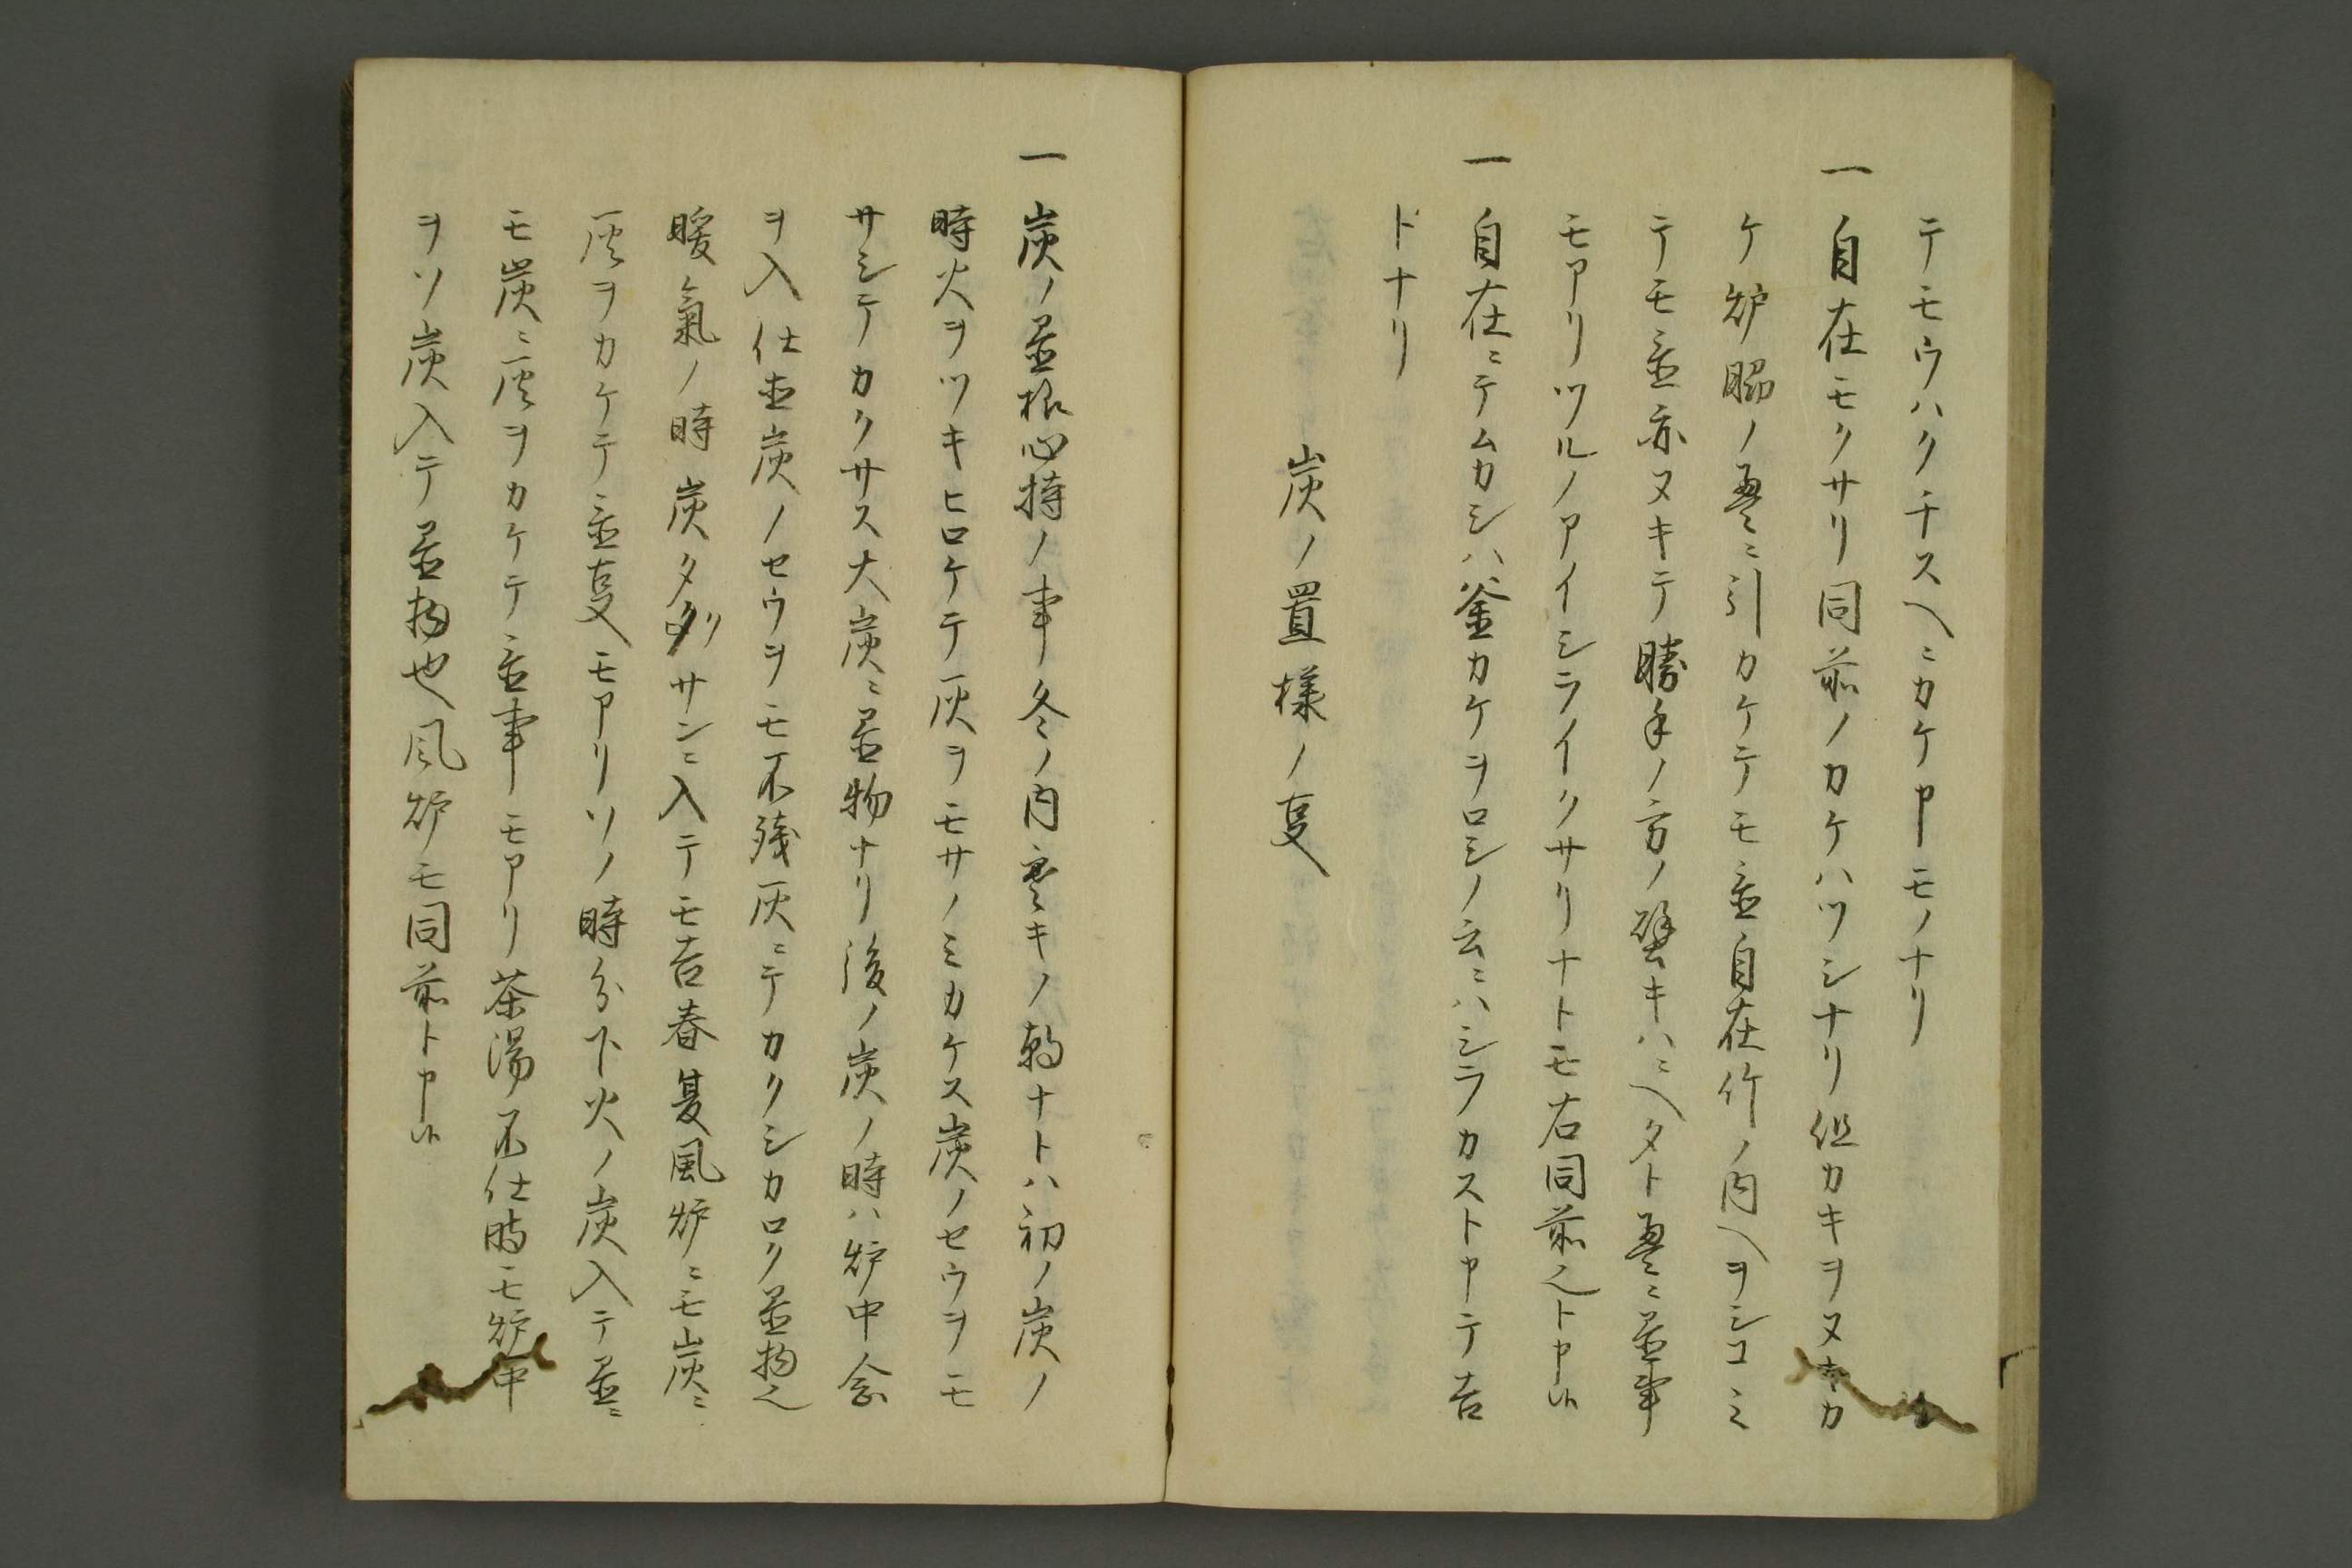 テモウハクチスヘニカケ申モノナリ
一自在モクサリ同前ノカケハツシナリ但カキヲヌキカ
ケ炉脇ノ畳ニ引カケテモ並自在竹ノ内ヘヲシコミ
テモ並亦ヌキテ勝手ノ方ノ壁キハニヘタト畳ニ置事
モアリツルノアイシライクサリナトモ右同前也ト申候
一自在ニテムカシハ釜カケヲロシノ云ニハシラカスト申テ吉
トナリ
炭ノ置様ノ事
一炭ノ置様心持ノ事冬ノ内寒キノ朝ナトハ初ノ炭ノ
時火ヲツキヒロケテ灰ヲモサノミカケス炭ノセウヲモ
サシテカクサス大炭ニ置物ナリ後ノ炭ノ時ハ炉中念
ヲ入仕並炭ノセウヲモ不残灰ニテカクシカロク置物也
暖氣ノ時炭タクサンニ入テモ吉春夏風炉ニモ炭ニ
灰ヲカケテ並事モアリソノ時分下火ノ炭入テ置ニ
モ炭ニ灰ヲカケテ並事モアリ茶湯不仕時モ炉中
ヲソ炭入テ置物也風炉モ同前ト申候